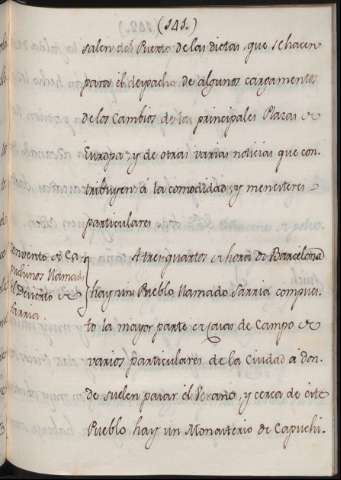 (141.)
salen del Puerto de las dietas, que se hacen
para el despacho de algunos cargamentos
de los Cambios de las principales Plazas de
Europa, y de otras varias noticias que con-
tribuyen à la comodidad, y menesteres
particulares
Convento de Ca-
puchinos llamado
el Desierto de
Sarria.
A tres quartos de hora de Barcelona
hay un Pueblo llamado Sarria compues-
to la mayor parte de casas de Campo de
varios particulares de la Ciudad à don-
de suelen pasar el Verano, y cerca de este
Pueblo hay un Monasterio de Capuchi-